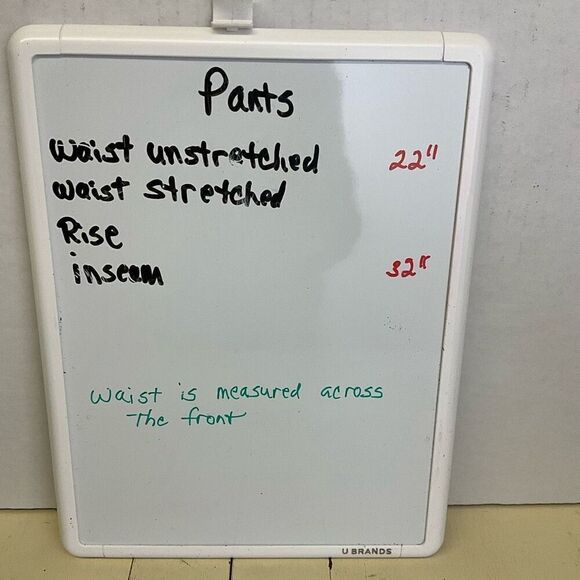 Pants
waist unstretched 22"
waist stretched
Rise
inseam 32"
waist is measured across
The front
U BRANDS